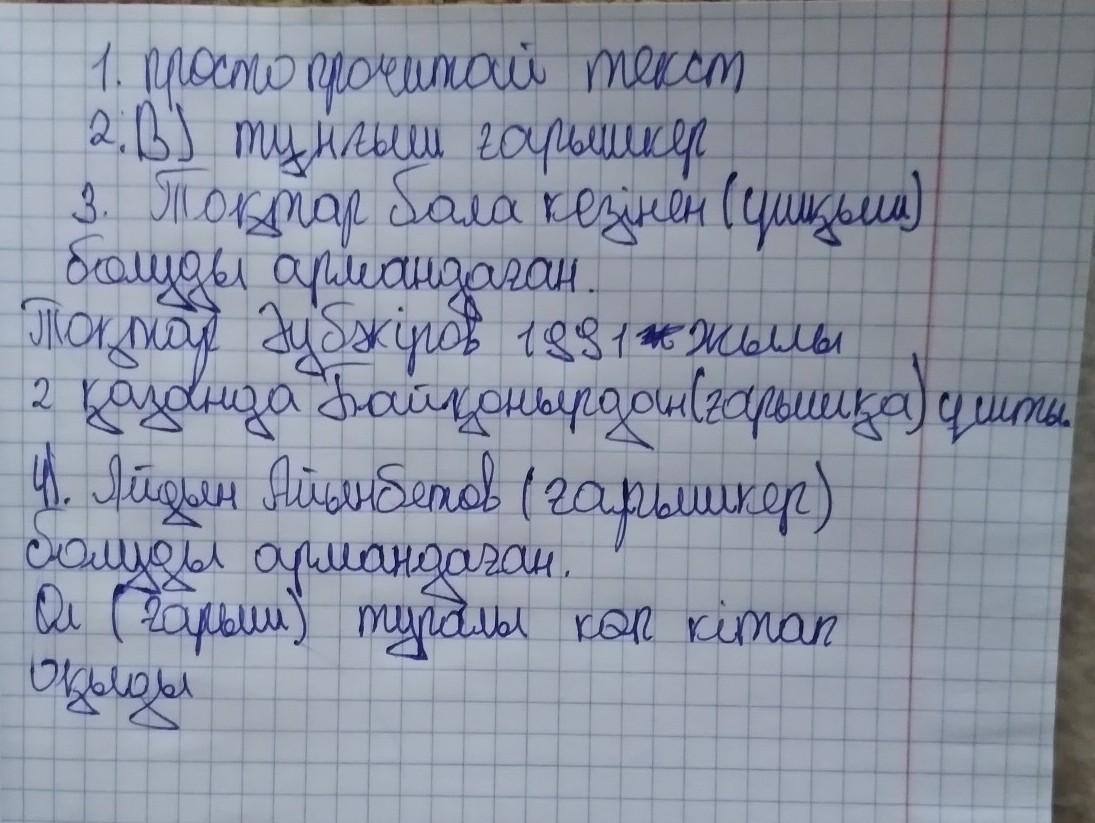 1. просто прочитай текст
2. В) тұңғыш ғарышкер
3. Тоқтар бала кезінен (ұшқыш)
болуды армандаған.
Тоқтар Әубәкіров 1991 жылы
2 қазанда Байқоңырдан (ғарышқа) ұшты.
4). Айдын Айымбетов (ғарышкер)
болуды армандаған.
Ол (ғарыш) туралы көп кітап
оқыды